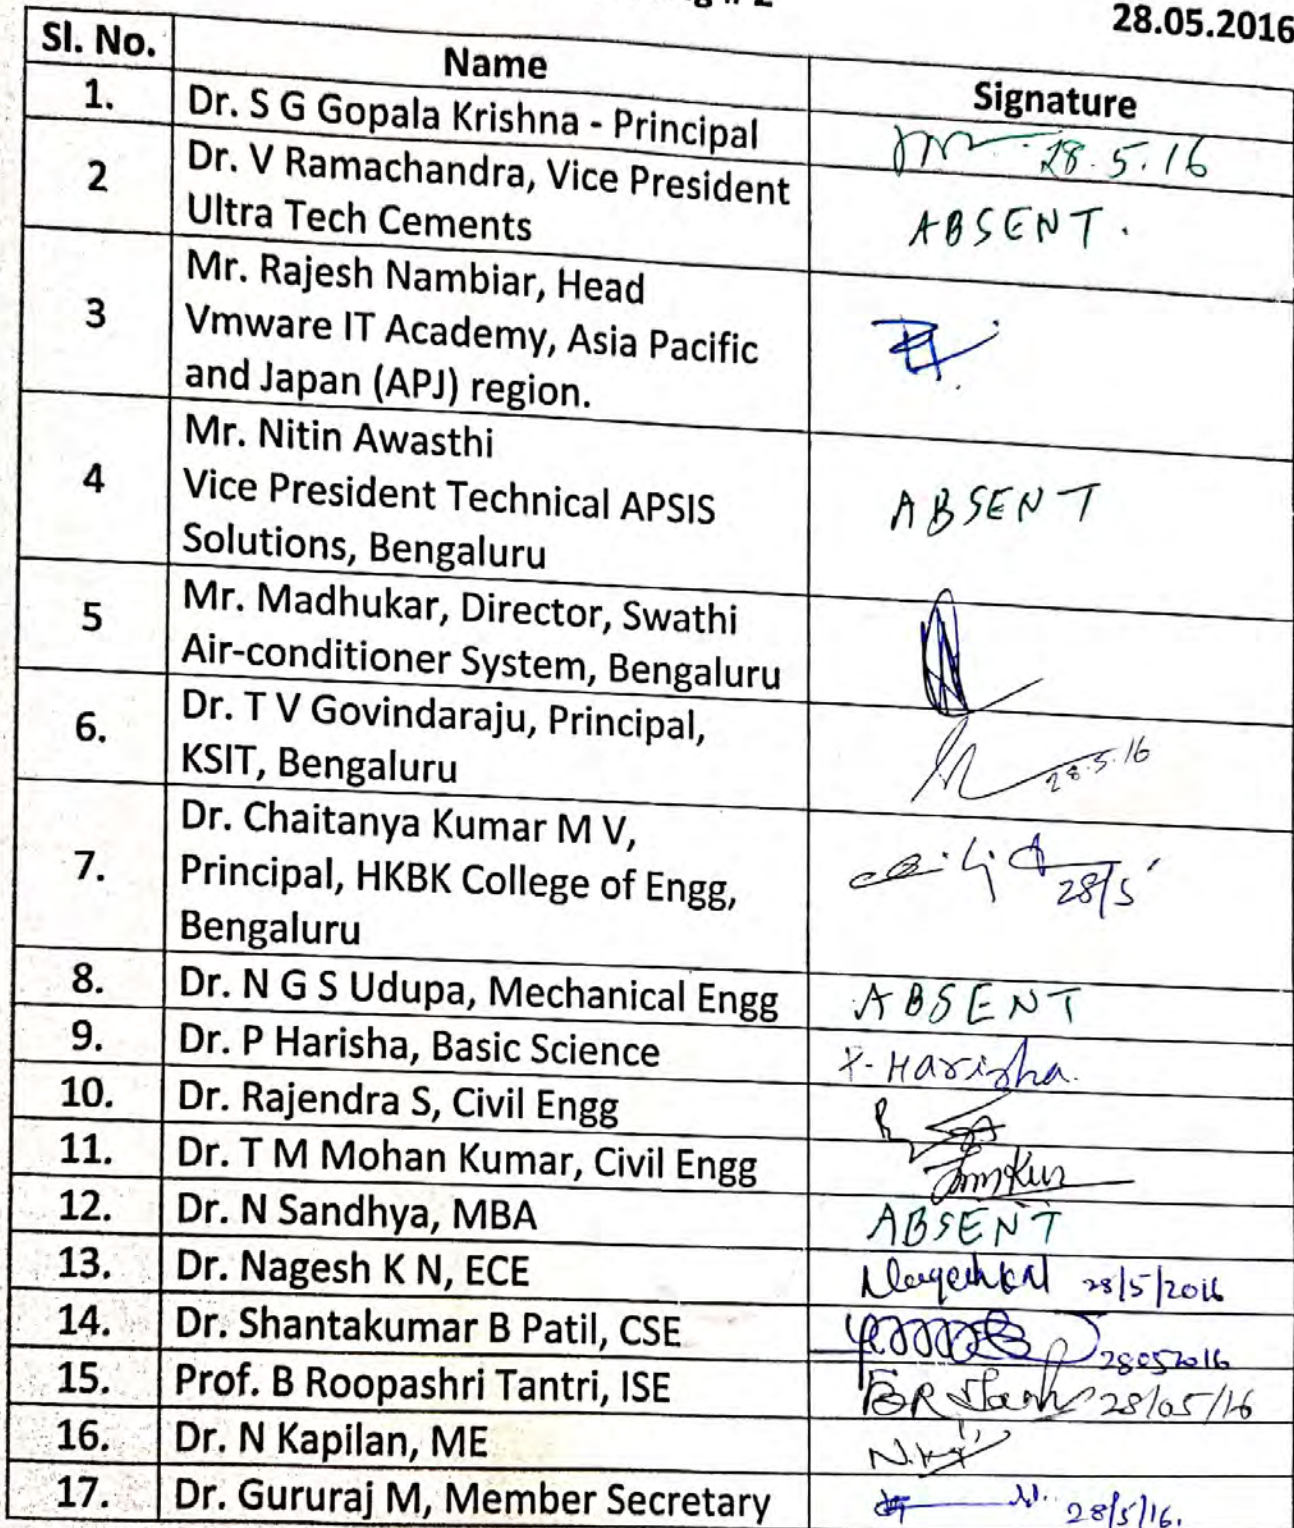 # 2
28.05.2016
Sl. No. Name Signature
1. Dr. S G Gopala Krishna - Principal 28.5.16
2 Dr. V Ramachandra, Vice President
Ultra Tech Cements ABSENT.
3 Mr. Rajesh Nambiar, Head
Vmware IT Academy, Asia Pacific
and Japan (APJ) region.
4 Mr. Nitin Awasthi
Vice President Technical APSIS
Solutions, Bengaluru ABSENT
5 Mr. Madhukar, Director, Swathi
Air-conditioner System, Bengaluru
6. Dr. T V Govindaraju, Principal,
KSIT, Bengaluru 28.5.16
7. Dr. Chaitanya Kumar M V,
Principal, HKBK College of Engg,
Bengaluru 28/5
8. Dr. N G S Udupa, Mechanical Engg ABSENT
9. Dr. P Harisha, Basic Science P. Harisha.
10. Dr. Rajendra S, Civil Engg
11. Dr. T M Mohan Kumar, Civil Engg
12. Dr. N Sandhya, MBA ABSENT
13. Dr. Nagesh K N, ECE 28/5/2016
14. Dr. Shantakumar B Patil, CSE 28052016
15. Prof. B Roopashri Tantri, ISE 28/05/16
16. Dr. N Kapilan, ME
17. Dr. Gururaj M, Member Secretary 28/5/16.